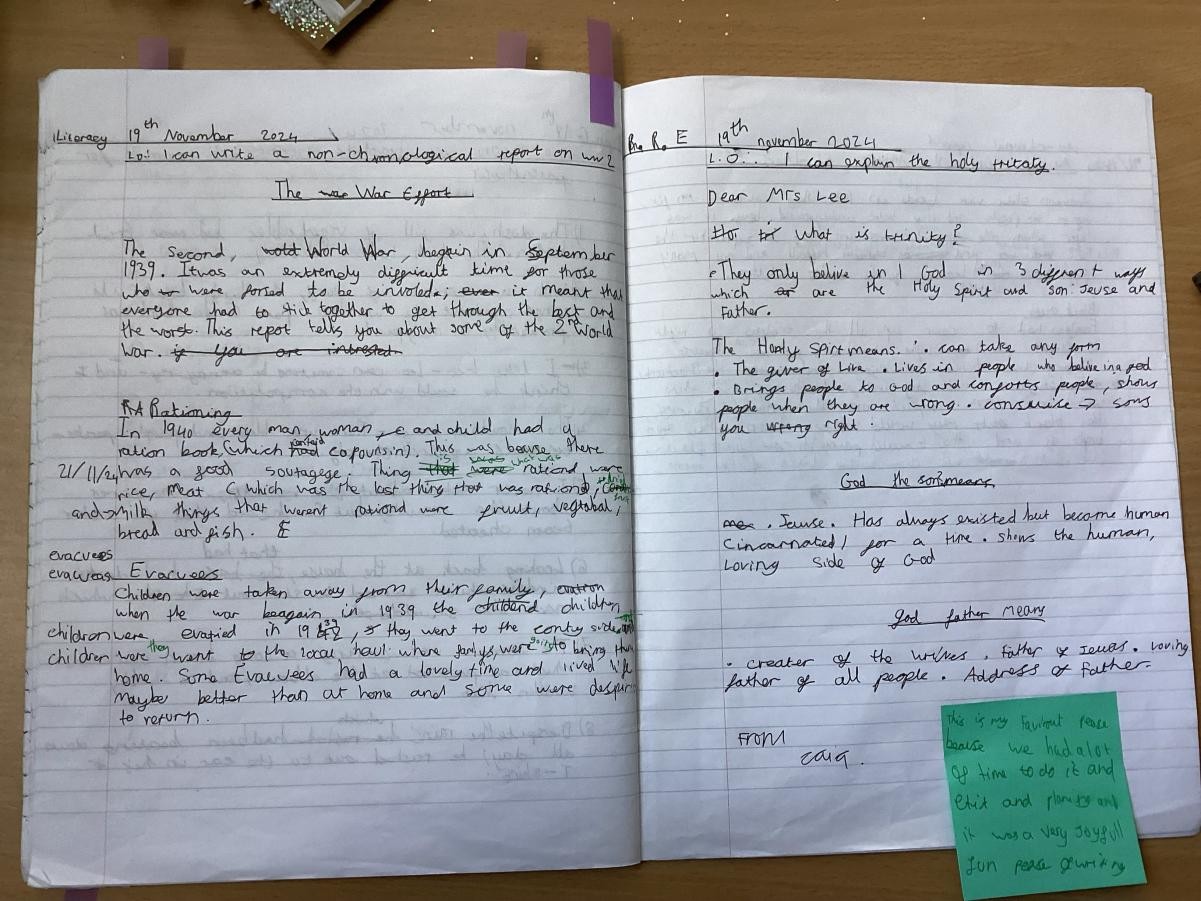 Literacy 19th November 2024
LO: I can write a non-chronological report on ww2
The war War Effort
The Second, wold World War, begain in September
1939. It was an extremely difficult time for those
who w were forsed to be involed; ever it meant that
everyone had to stick together to get through the best and
the worst. This repot tells you about some of the 2nd World
War. if you are intrested
RA Rationing
In 1940 every man, woman, c and child had a
ration book, (which had copounsin). This was beause there
21/11/24 was a good soutagege. Thing that is were was what was rationd were
rice, meat (which was the last thing that was rationd,
and → milk things that werent rationd were fruit, vegtabal,
bread and fish. E
evacuees
evaweas Evacuees
Children were taken away from their family,
when the war beagain in 1939 the childerd children
children were evatied in 1939, they went to the conty side and
children were they went to the local haul where famlys were going to bring them
home. Some Evacuees had a lovely time and lived life
Maybe better than at home and some were despur
to return.
R.E 19th november 2024
L.O.: I can explain the holy tritaty.
Dear Mrs Lee
What is trinity?
They only belive in 1 God in 3 different ways
which or are the Holy Spirit and son: Jeuse and
Father.
The Hoaly Spirt means. . can take any form
. The giver of Live . Lives in people who belive in a god
. Brings people to God and conforts people, shows
people when they are wrong. consuise → sons
you wrong right.
God the son? means
. Jeuse. Has always existed but become human
(incarnated) for a time. shows the human,
Loving side of God
god father means
. creater of the . Father of Jeuas. Loving
father of all people. Address of Father.
From
This is my Favirout pease
beause we had a lot
of time to do it and
Etit and planing and
it was a very Joyfull
fun pease of writing